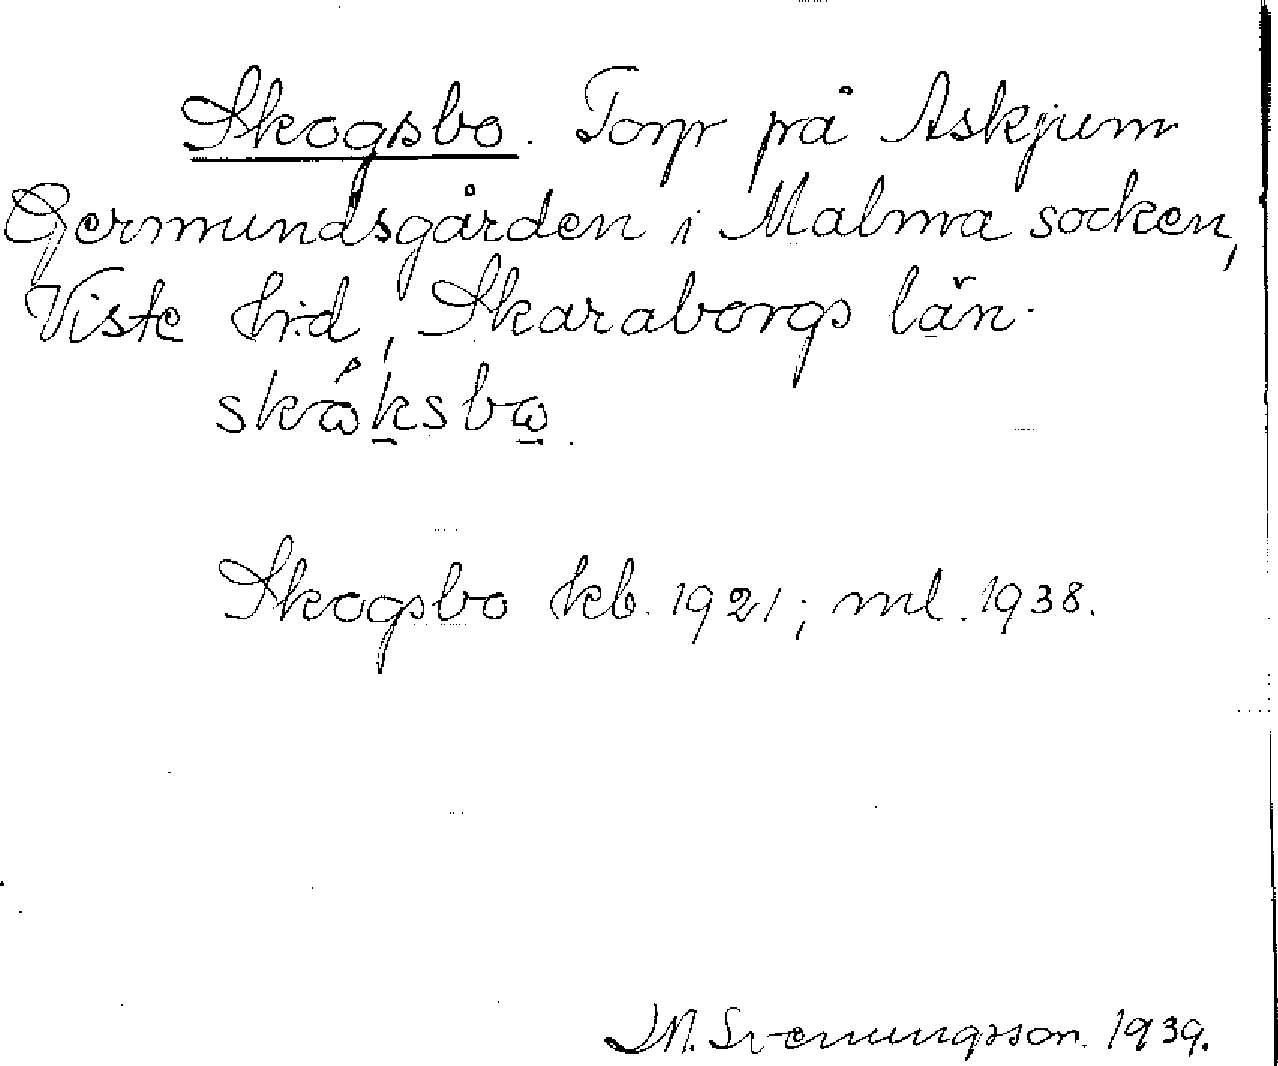 Skogsbo. Torp på Askjum
Germundsgården i Malma socken,
Viste h:d, Skaraborgs län.
skɷ́ḵsbɷ̱.
Skogsbo kb. 1921; ml. 1938.
J.M. Svenungsson. 1939.